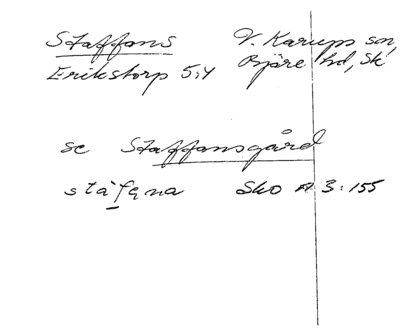 Staffans V. Karups sn,
Erikstorp 5:4 Bjäre hd, Sk
se Staffansgård
stàfęna Sko A 3:155